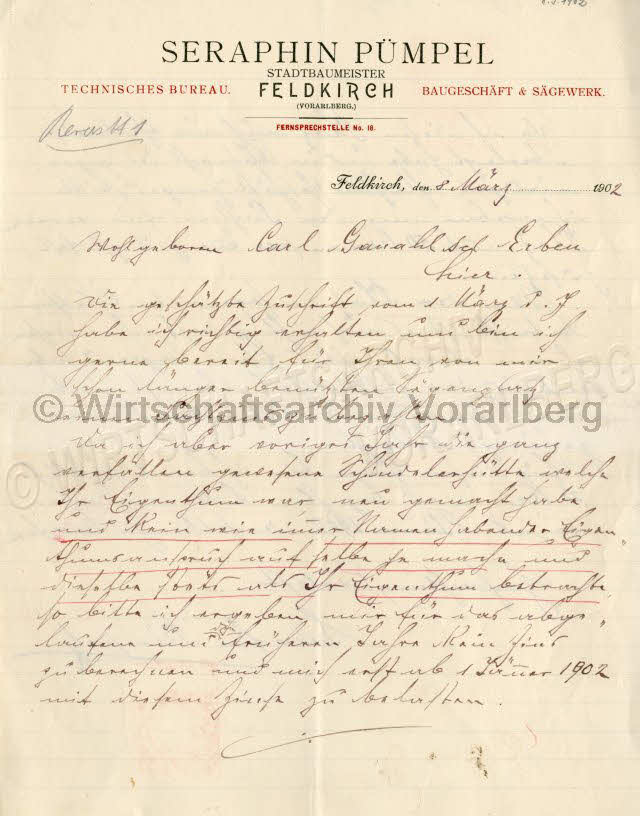 8.3.1902
SERAPHIN PÜMPEL
STADTBAUMEISTER
TECHNISCHES BUREAU. FELDKIRCH BAUGESCHÄFT & SÄGEWERK.
(VORARLBERG.)
FERNSPRECHSTELLE No. 18.
Feldkirch, den 8 März 1902
Wohlgeboren Carl Ganahl sel Erben
hier.
Die geschätzte Zuschrift vom 1 März d. J
habe ich richtig erhalten und bin ich
gerne bereit für Ihren von mir
schon länger benützten
zu bezahlen.
Da ich aber voriges Jahr die ganz
verfallen gewesene Schindelerhütte welche
Ihr Eigenthum war neu gemacht habe
und kein wie immer Namen habender Eigen„
thumsanspruch auf selbe je mache und
dieselbe stets als Ihr Eigenthum betrachte
so bitte ich ergeben mir für das abge„
laufene und früheren Jahre kein Zins
zu berechnen und mich erst ab 1 Jänner 1902
mit diesem Zinse zu belasten.
© Wirtschaftsarchiv Vorarlberg